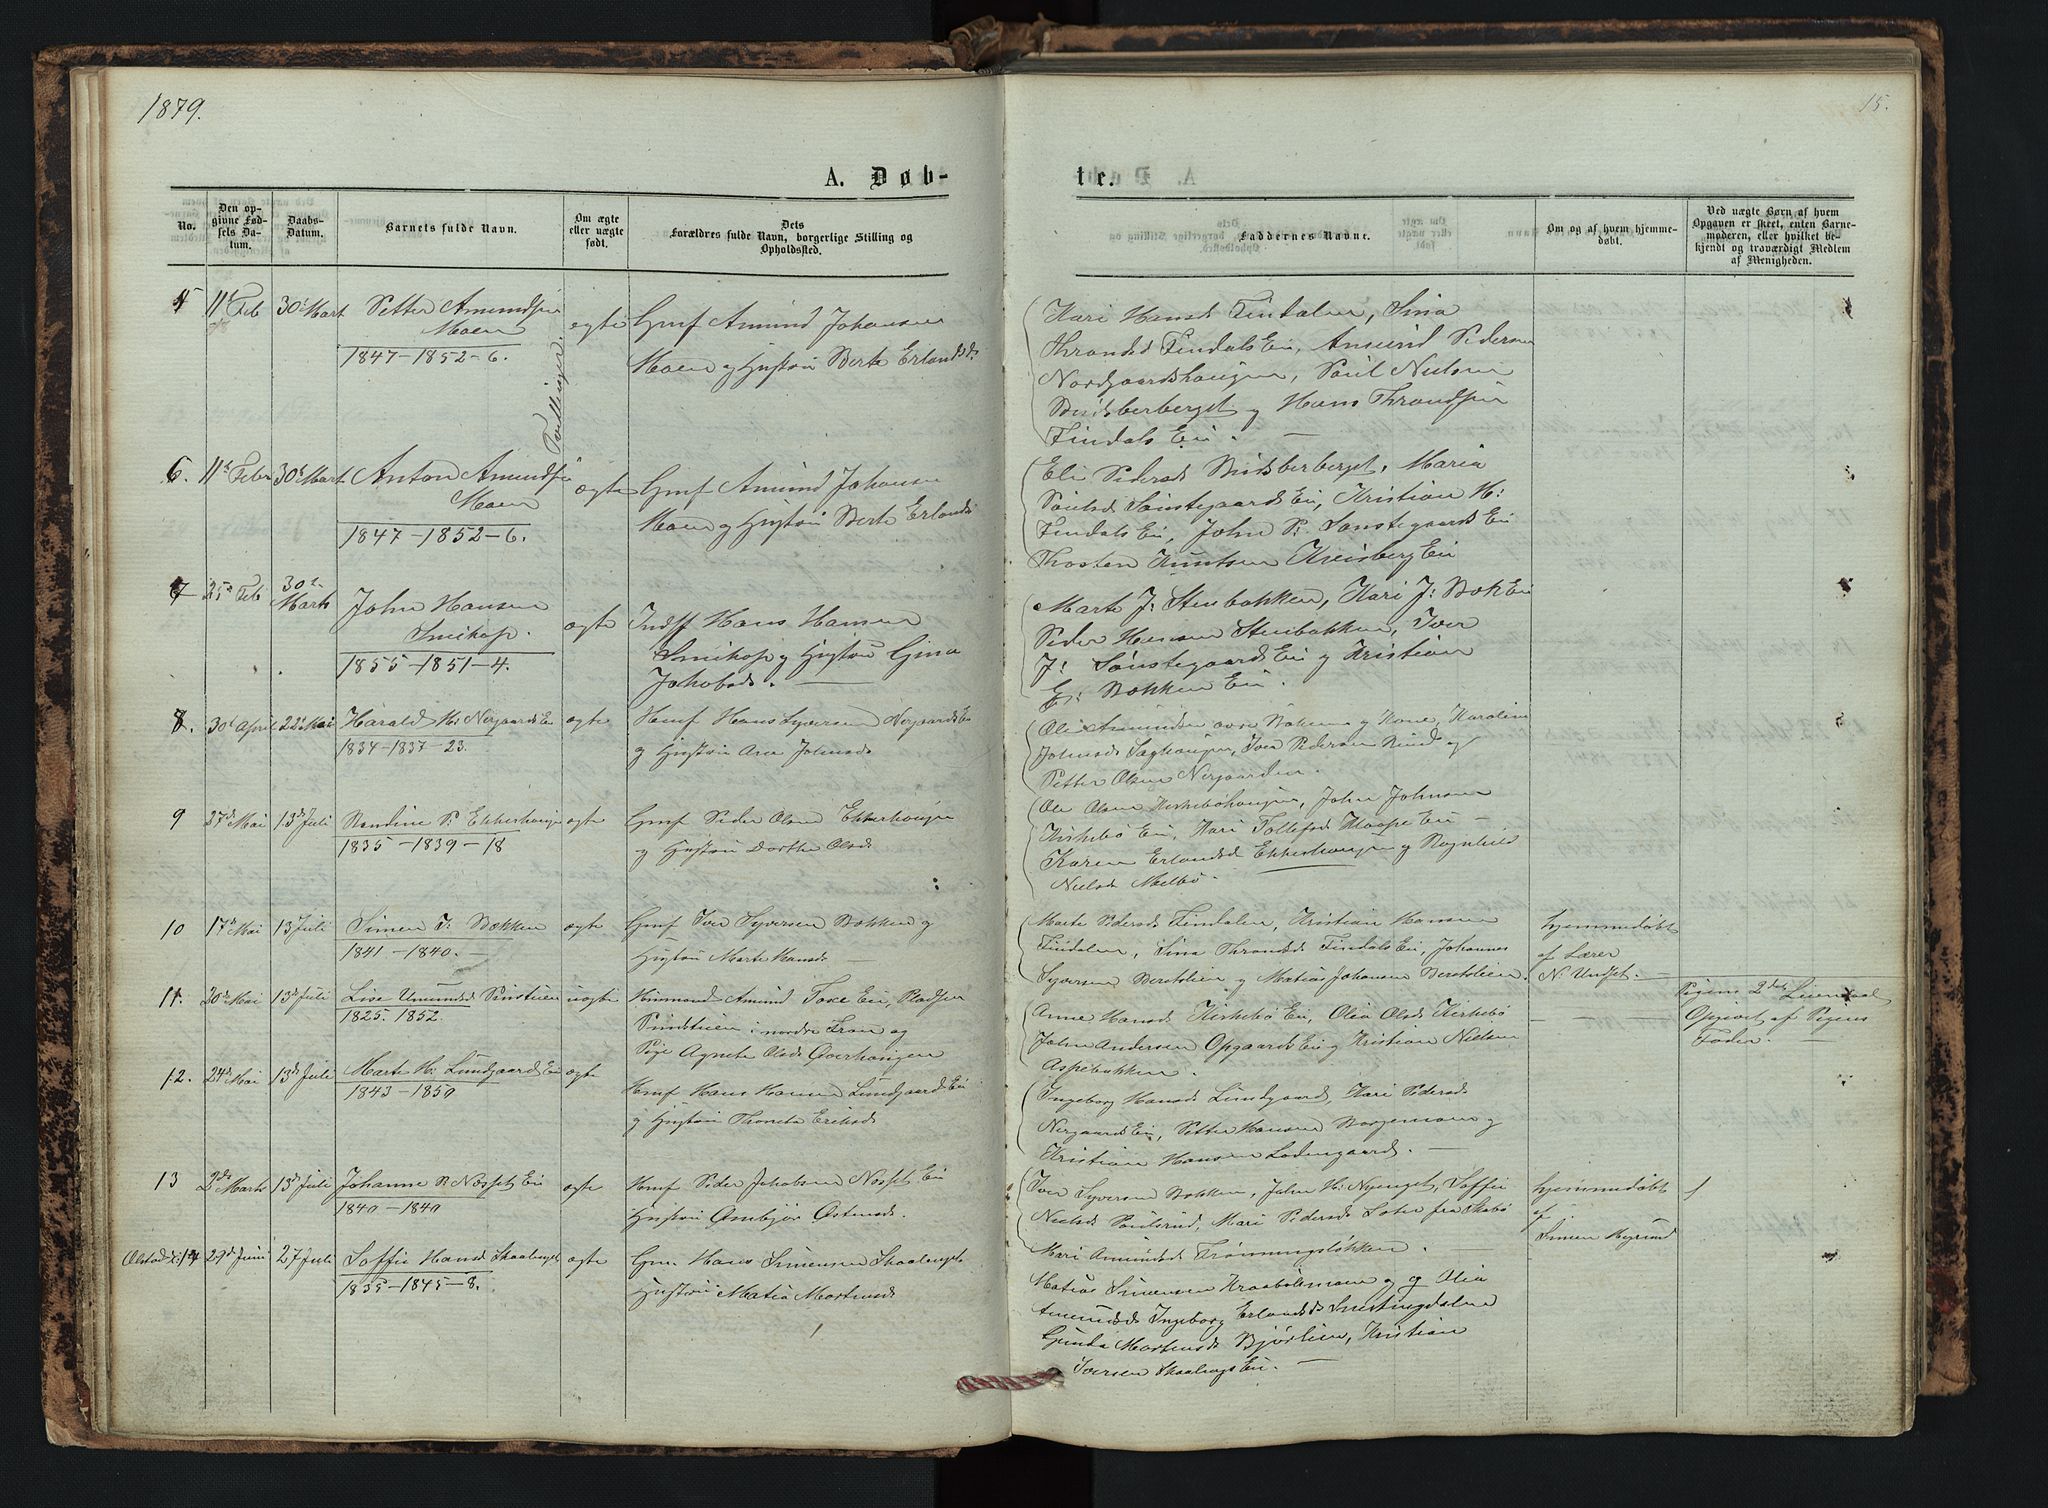 1879.
15.
A. Døb-
te.
No.
Den op-
givne Fød-
sels Da-
tum.
Daabs-
Datum.
Barnets fulde Navn.
Om ægte
eller uægte
født.
Dets
Forældres fulde Navn, borgerlige Stilling og
Opholdssted.
Faddernes Navne.
Om og af hvem hjemme-
døbt.
Ved uægte Børn af hvem
Opgaven er skeet, enten Barne-
moderen, eller hvilket be-
kjendt og troværdigt Medlem
af Menigheden.
5 11t Feb 30t Mart Petter Amundsen
Moen
1847-1852-6.
Tvillinger.
ægte Gmf Amund Johansen
Moen og Hustru Berte Erlandsd
Kari Hansd Findalen, Sina
Throndsd Findals Ei, Amund Pedersen
Nordgaardshaugen, Poul Nielsen
Budsberberget og Hans Throndsen
Findals Ei. —
6. 11t Febr 30t Mart Anton Amundsen
Moen
1847-1852-6.
ægte Gmf Amund Johansen
Moen og Hustru Berte Erlandsd
Eli Pedersd Budsberberget, Maria
Poulsd Sønstegaards Ei, Kristian H:
Findals Ei, John P: Sønstegaards Ei
Thosten Knutsen Kreisberg Ei
7 25d Feb 30t
Marts
John Hansen
1855-1851-4.
ægte Indst Hans Hansen
og Hustru Gina
Jakobsd. —
Marte J: Stenbakken, Kari J: Bæk Ei
Peder Hansen Stenbakken, Iver
J: Sønstegaards Ei og Kristian
E: Bakken Ei.
8. 30t April 22d Mai Harald H: Nergaards Ei
1834-1837-23.
ægte Husmf Hans Syversen Nergaards Ei
og Hustru Ane Johnsd
Ole Amundsen øvre Bakken og Kone, Karoline
Johnsd Saghaugen, Iver Pedersen Rind og
Petter Olsen Nergaarden.
9 27d Mai 13d Juli Randine P: Ekkerhaugen
1835-1839-18
ægte Gmf Peder Olsen Ekkerhaugen
og Hustru Dorthe Olsd
Ole Olsen Kirkebøhaugen, John Johnsen
Kirkebø Ei, Kari Tollefsd Klaape Ei —
Karen Erlandsd Ekkerhaugen og Ragnhild
Nielsd Melbø.
10 17d Mai 13 Juli Simen I: Bakken
1841-1840. —
ægte Gmf Iver Syversen Bakken og
Hustru Marte Hansd —
Marte Pedersd Findalen, Kristian Hansen
Findalen, Sina Throndsd Findals Ei, Johannes
Syversen Berstelien og Matias Johansen Berstelien.
hjemmedøbt
af Lærer
N. Undset. —
11. 20d Mai 13d Juli Lise Amundsd
1825. 1852.
uægte Amund Toxe Ei, Pladsen
i nordre Fron og
Pige Agnete Olsd Overhaugen
Anne Hansd Kirkebø Ei, Olia Olsd Kirkebø
John Andersen Opgaards Ei og Kristian Nielsen
Aspebakken.
Pigens 2det Leiermaal
Opgivet af Pigens
Fader. —
12. 24d Mai 13d Juli Marte H: Lundgaards Ei
1843-1850
ægte Husmf Hans Hansen Lundgaards Ei
og Hustru Thonete Eriksd
Ingeborg Hansd Lundgaard, Kari Pedersd
Nergaards Ei, Petter Hansen og
Kristian Hansen Lodengaard. —
13 2de Marts 13d Juli Johanne P. Nosset Ei
1840-1840
ægte Husmf Peder Jakobsen Nosset Ei
Hustru Anebjør Østensd.
Iver Syversen Bakken, John H: Nyenget, Soffie
Nielsd Poulsrud, Mari Pedersd fra Skabø
Mari Amundsd —
hjemmedøbt
af
Simen
Olstad k: 14 29d Juni 27 Juli Soffie Hansd Skaalenget
1835-1845-8.
ægte Gm. Hans Simensen Skaalenget
Hustru Matea Mortensd
Matias Simensen og Olia
Amundsd Ingeborg Erlandsd
Gunda Mortensd Bjørlien, Kristian
Iversen Skaalengs Ei. —